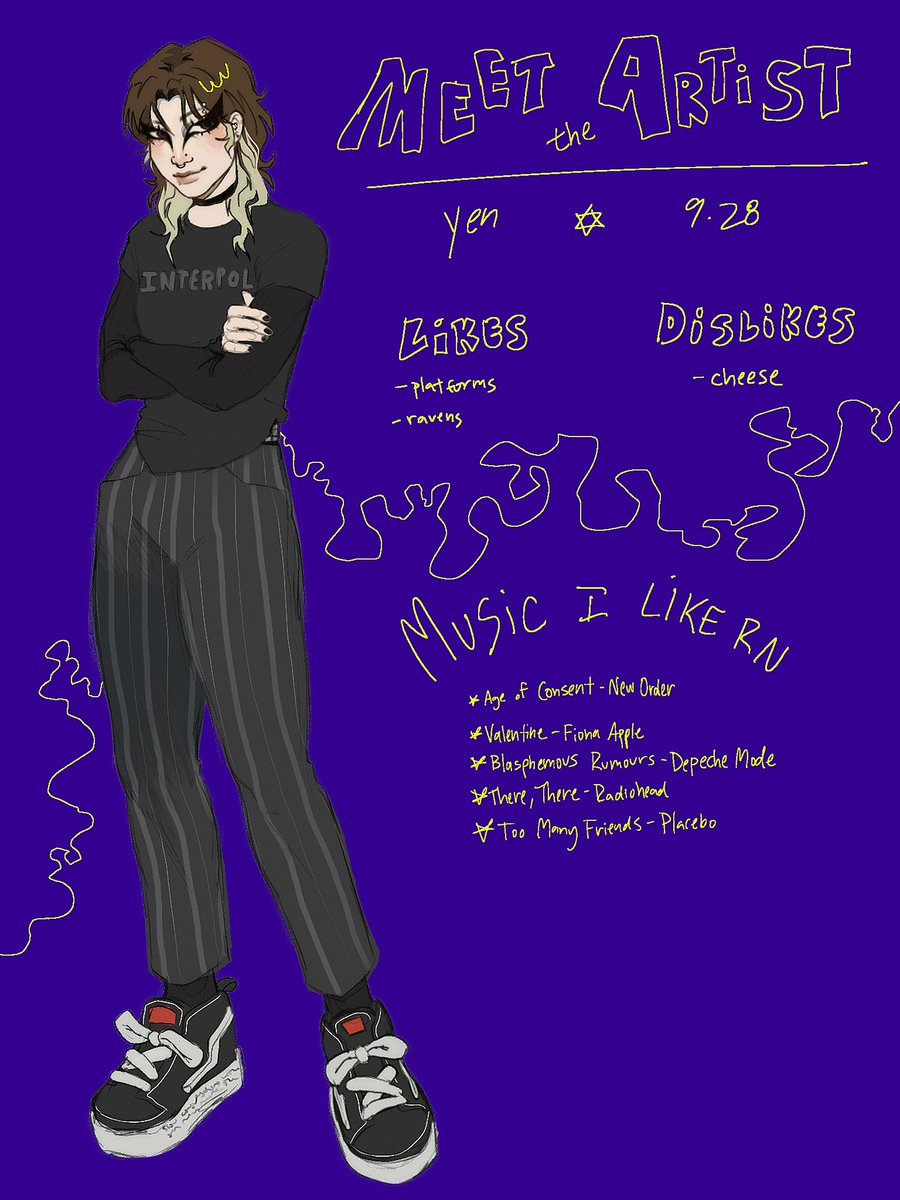 MEET the ARTiST
yen ✡ 9.28
LiKES
- platforms
- ravens
DiSLiKES
- cheese
INTERPOL
MUSiC I LiKE RN
★ Age of Consent - New Order
★ Valentine - Fiona Apple
★ Blasphemous Rumours - Depeche Mode
★ There, There - Radiohead
★ Too Many Friends - Placebo